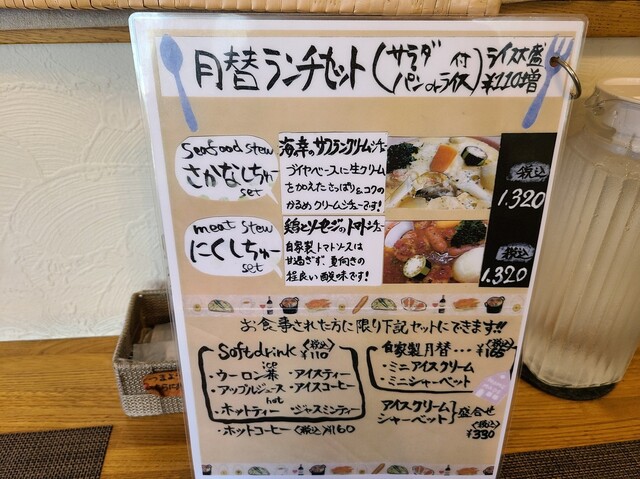 月替ランチセット（サラダ付 パンorライス）ライス大盛 ¥110増
Seafood stew
さかなしちゅー
set
海の幸のサフランクリームシチュー
ブイヤベースに生クリーム
を加えたさっぱり&コクの
かるめクリームシチューです!
税込
1.320
meat stew
にくしちゅー
set
鶏とソーセージのトマトシチュー
自家製トマトソースは
甘過ぎず、夏向きの
程良い酸味です!
税込
1.320
お食事された方に限り下記セットにできます!!
Softdrink <税込> ¥110
ice
・ウーロン茶 ・アイスティー
・アップルジュース ・アイスコーヒー
hot
・ホットティー ・ジャスミンティー
・ホットコーヒー <税込> ¥160
自家製月替・・・<税込> ¥165
・ミニアイスクリーム
・ミニシャーベット
アイスクリーム
シャーベット 盛合せ
<税込>
¥330